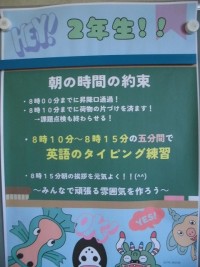 HEY! 2年生!!
朝の時間の約束
・8時00分までに昇降口通過！
・8時10分までに荷物の片づけを済ます！
→課題点検も終わらせる！
・8時10分～8時15分の五分間で
英語のタイピング練習
・8時15分朝の挨拶を元気よく！！(^^)
～みんなで頑張る雰囲気を作ろう～
YES!